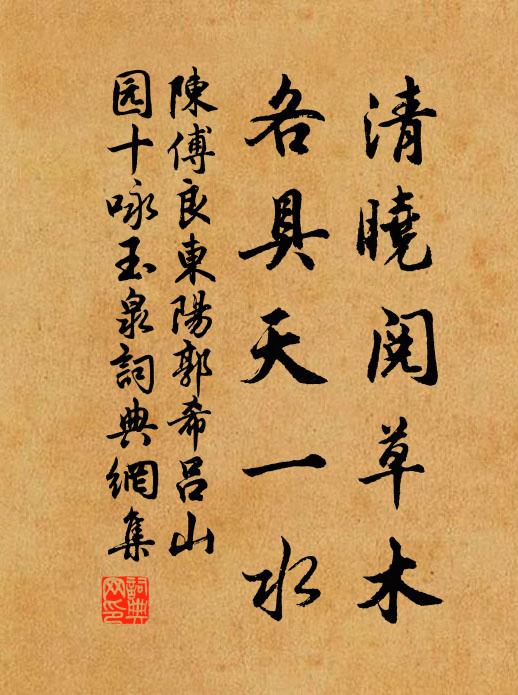 清曉閱草木
各具天一水
陳傅良東陽郭希呂山
园十咏玉泉詞典網集
詞典网印